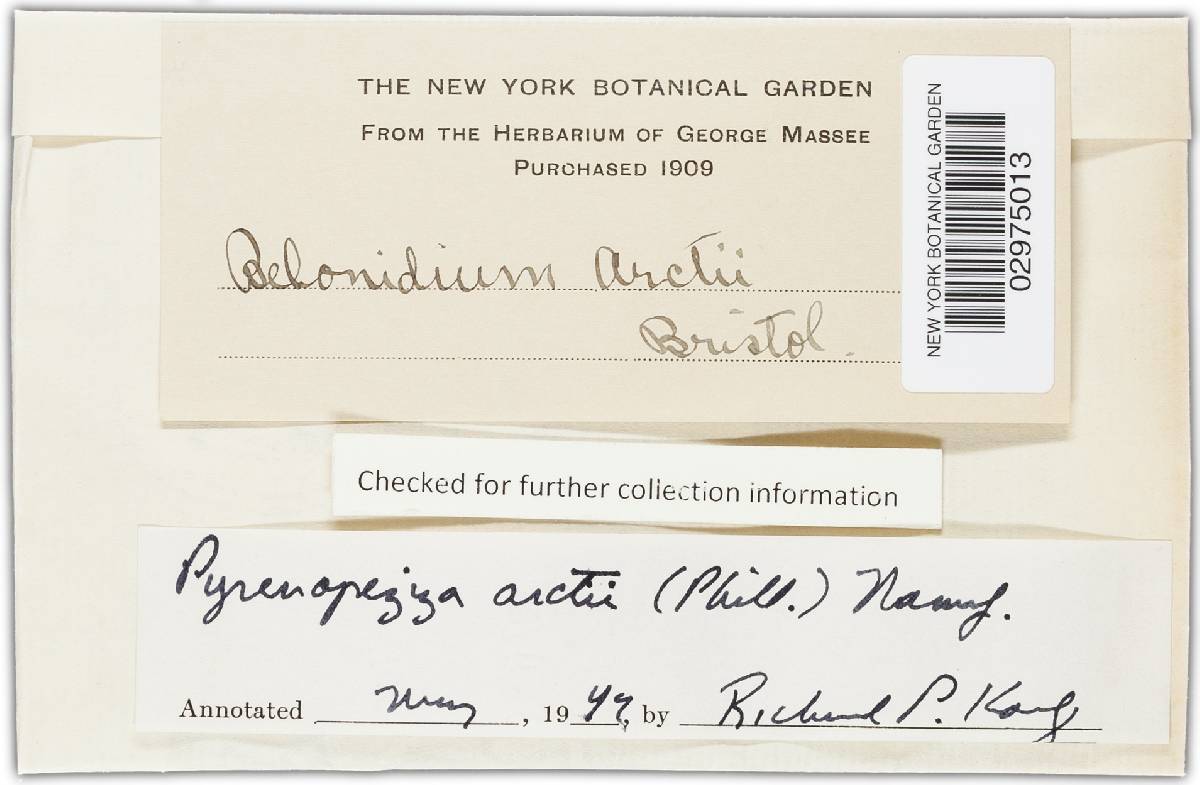 THE NEW YORK BOTANICAL GARDEN
FROM THE HERBARIUM OF GEORGE MASSEE
PURCHASED 1909
Belonidium Arctii
Bristol.
NEW YORK BOTANICAL GARDEN
02975013
Checked for further collection information
Pyrenopeziza arctii (Phill.) Nannf.
Annotated May, 1947, by Richard P. Korf